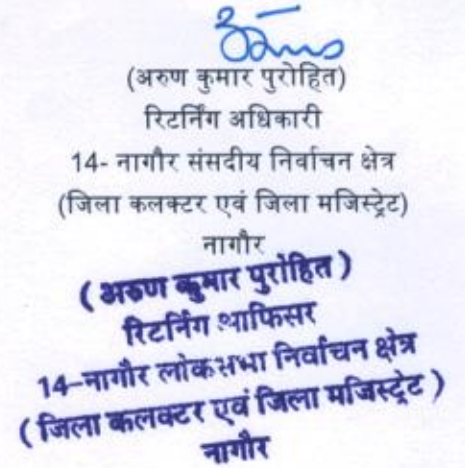 (अरुण कुमार पुरोहित)
रिटर्निंग अधिकारी
14- नागौर संसदीय निर्वाचन क्षेत्र
(जिला कलक्टर एवं जिला मजिस्ट्रेट)
नागौर
( अरुण कुमार पुरोहित )
रिटर्निंग आफिसर
14-नागौर लोकसभा निर्वाचन क्षेत्र
( जिला कलक्टर एवं जिला मजिस्ट्रेट )
नागौर